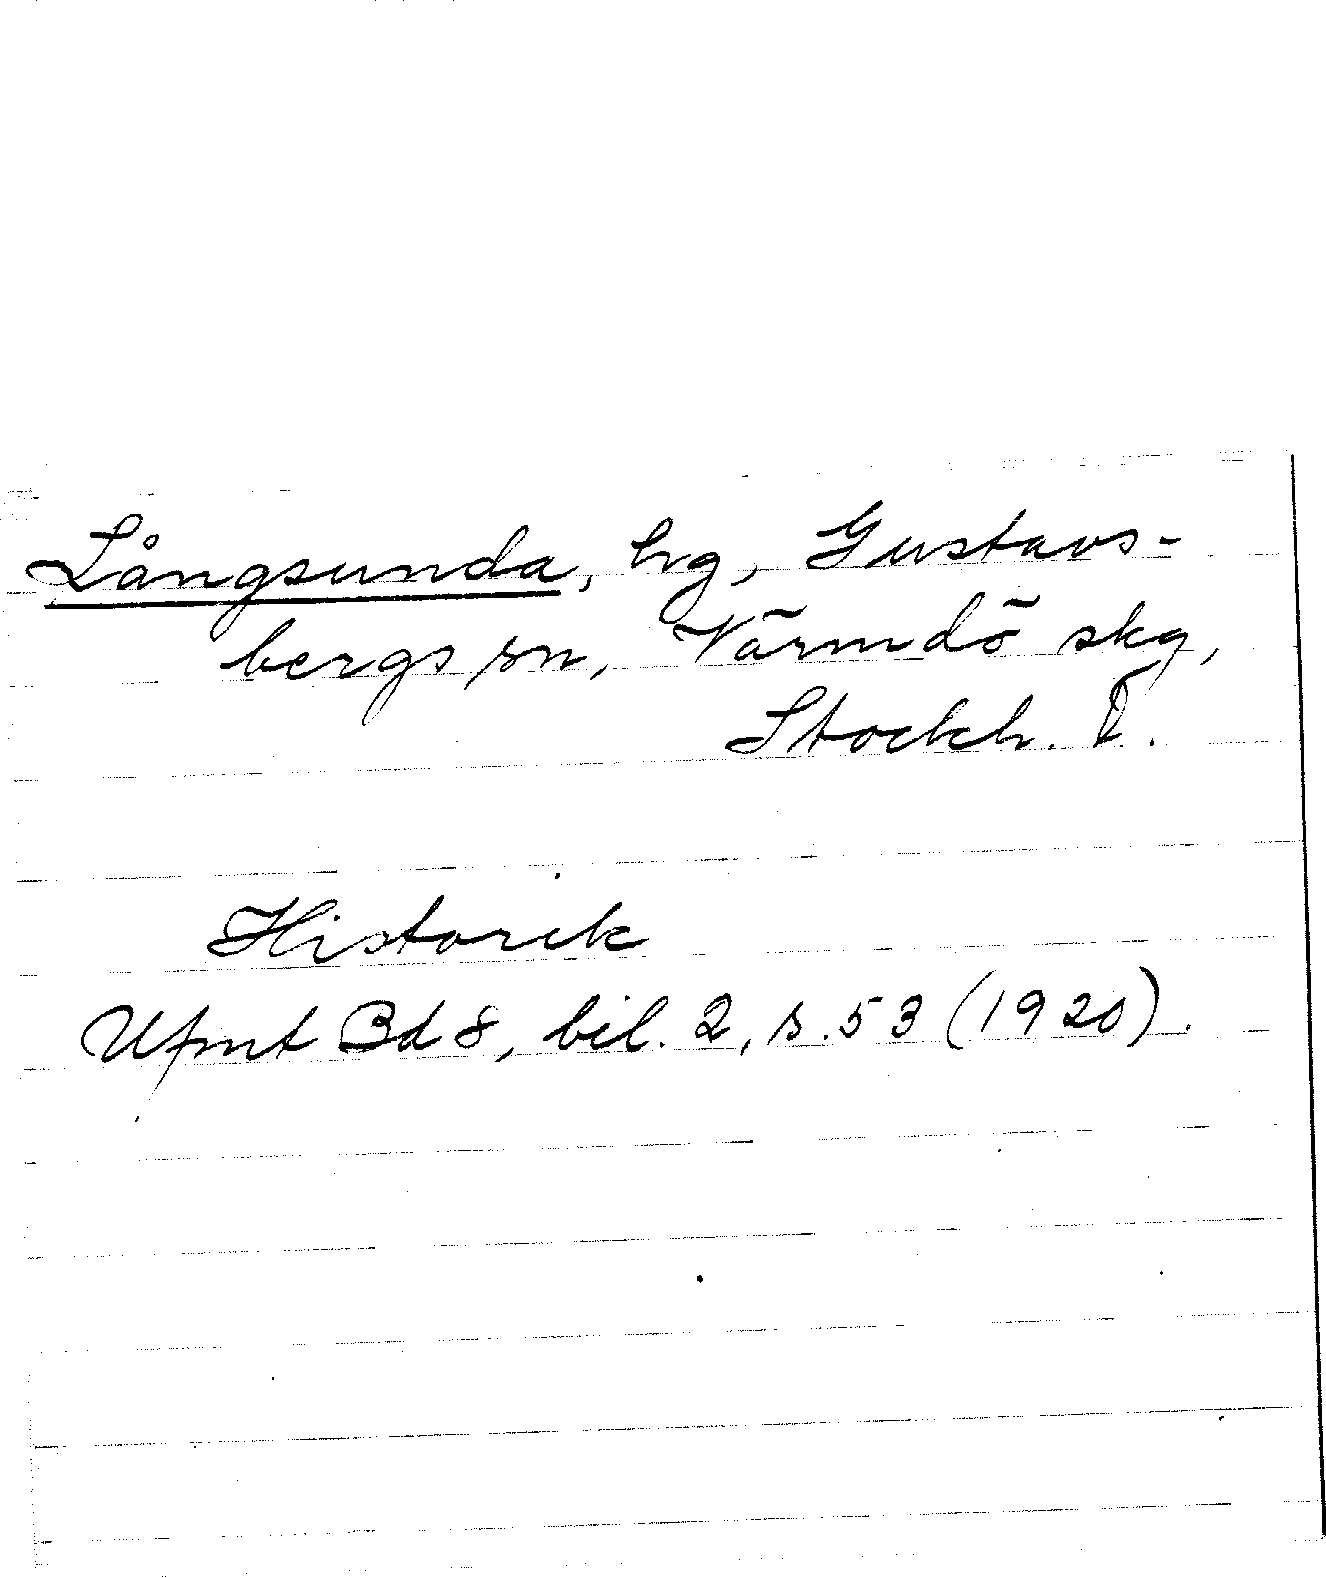 Långsunda, hg, Gustavs-
bergs sn, Värmdö skg,
Stockh. l.
Historik
Ufmt Bd 8, bil. 2, s. 53 (1920).